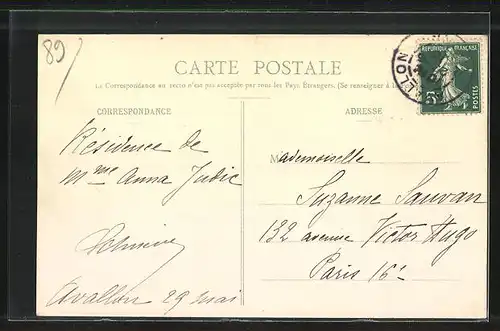 89
CARTE POSTALE
La Correspondance au recto n'est pas acceptée par tous les Pays Étrangers. (Se renseigner à la
CORRESPONDANCE
ADRESSE
RÉPUBLIQUE FRANÇAISE
5c
POSTES
Résidence de
Mme Anna Judic
Avallon 29 mai
Mademoiselle
Suzanne Sauvan
132 avenue Victor Hugo
Paris 16e